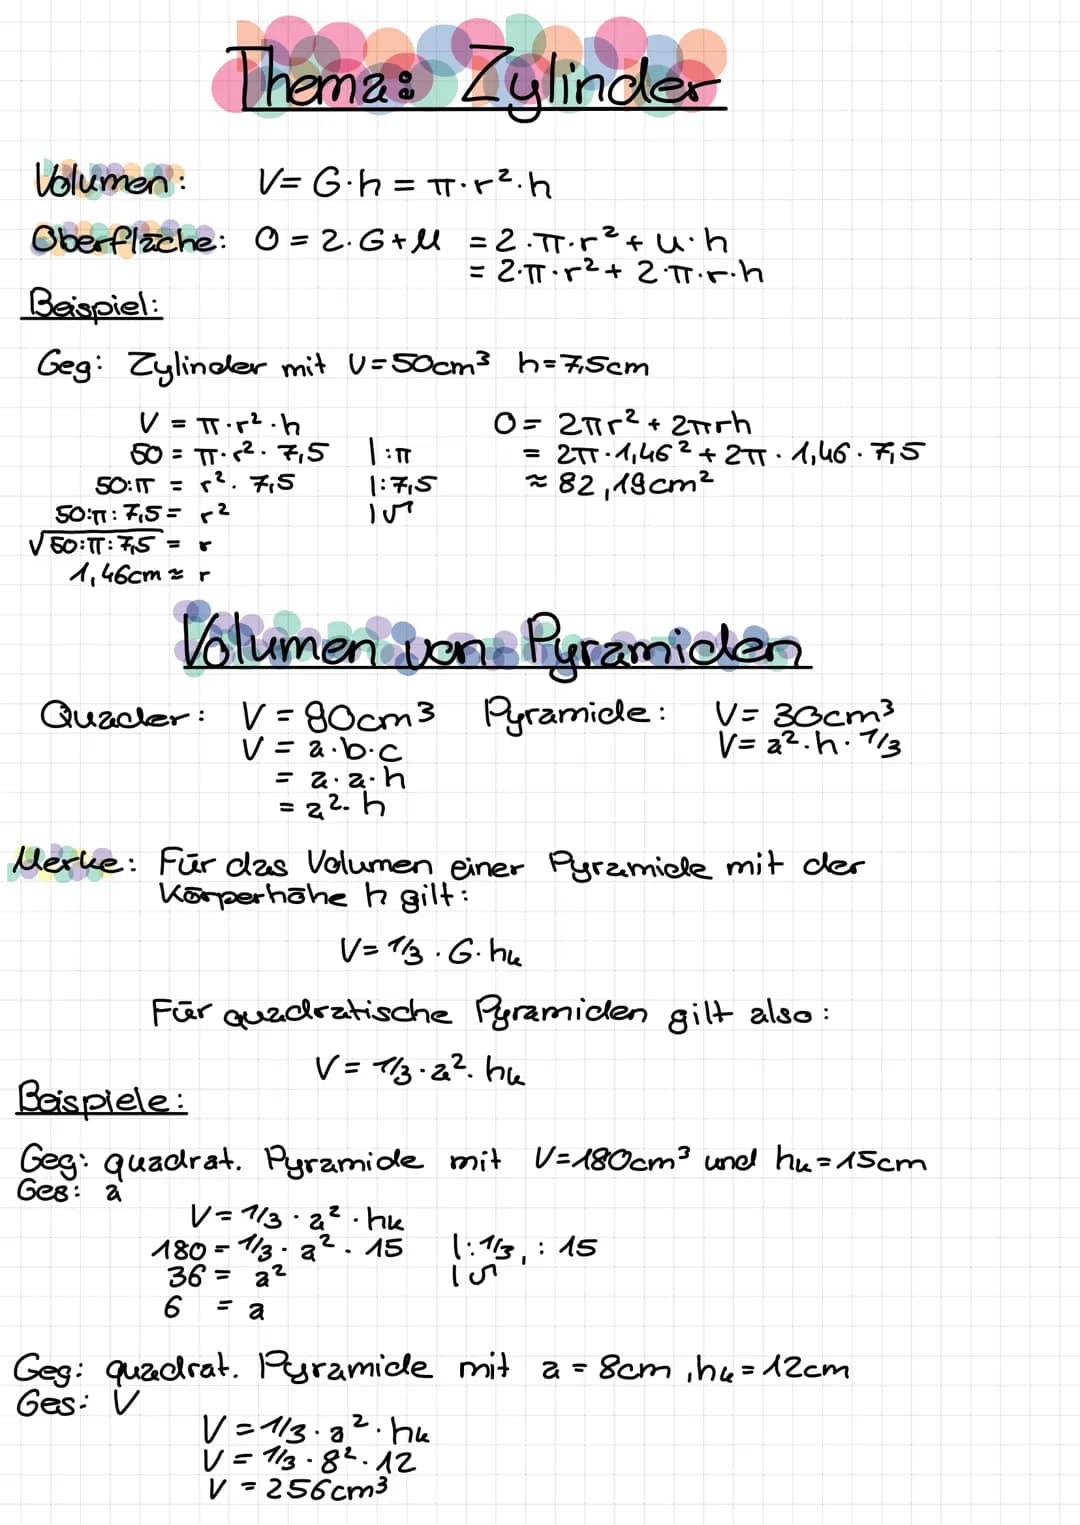 Thema: Zylinder
Volumen: V= G·h = π·r²·h
Oberfläche: O = 2·G+M = 2·π·r² + u·h
= 2·π·r² + 2·π·r·h
Beispiel:
Geg: Zylinder mit V=50cm³ h=7,5cm
V = π·r²·h
50 = π·r²·7,5 |:π
50:π = r²·7,5 |:7,5
50:π:7,5 = r² |√
√50:π:7,5 = r
1,46cm ≈ r
O = 2πr² + 2πrh
= 2π·1,46² + 2π·1,46·7,5
≈ 82,19cm²
Volumen von Pyramiden
Quader: V = 80cm³ Pyramide: V= 30cm³
V = a·b·c V= a²·h·1/3
= a·a·h
= a²·h
Merke: Für das Volumen einer Pyramide mit der
Körperhöhe h gilt:
V= 1/3·G·hk
Für quadratische Pyramiden gilt also:
V= 1/3·a²·hk
Beispiele:
Geg: quadrat. Pyramide mit V=180cm³ und hk=15cm
Ges: a
V= 1/3·a²·hk
180 = 1/3·a²·15 |:1/3, :15
36 = a² |√
6 = a
Geg: quadrat. Pyramide mit a = 8cm, hk = 12cm
Ges: V
V = 1/3·a²·hk
V = 1/3·8²·12
V = 256cm³